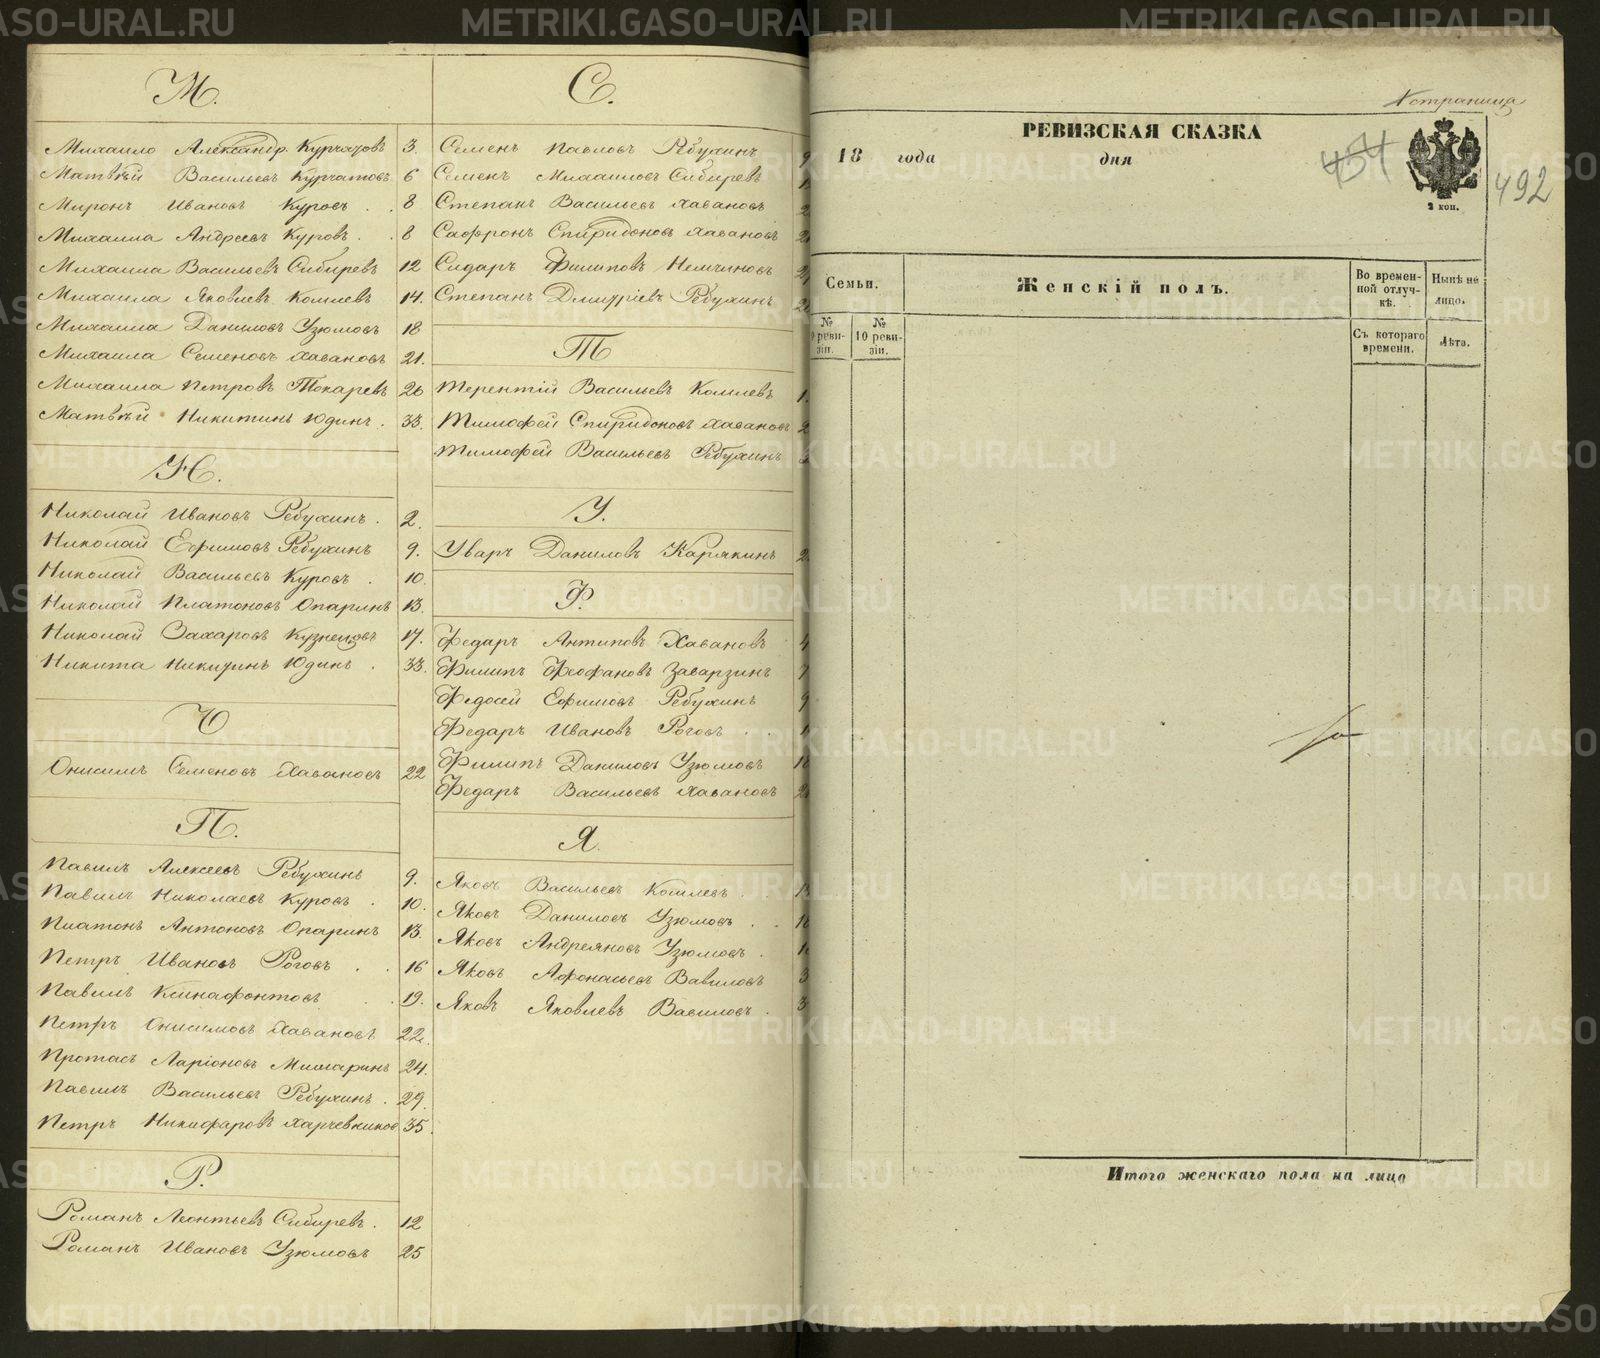 М.
Михаило Александр. Курчатовъ 3.
Матвѣй Васильевъ Курчатовъ 6
Миронъ Ивановъ Куровъ 8
Михаила Андреевъ Куровъ 8
Михаила Васильевъ Сибиревъ 12
Михаила Яковлевъ Кошлевъ 14.
Михаила Даниловъ Узюмовъ 18
Михаила Семеновъ Хавановъ 21.
Михаила Петровъ Токаревъ 26
Матвѣй Никитинъ Юдинъ. 33.
Н.
Николай Ивановъ Ребухинъ. 2.
Николай Ефимовъ Ребухинъ 9.
Николай Васильевъ Куровъ. 10.
Николай Платоновъ Опаринъ 13.
Николай Захаровъ Кузнецовъ 17.
Никита Никитинъ Юдинъ. 33.
О
Онисимъ Семеновъ Хавановъ 22
П.
Павилъ Алексеевъ Ребухинъ 9.
Павилъ Николаевъ Куровъ. 10.
Платонъ Антоновъ Опаринъ 13.
Петръ Ивановъ Роговъ 16
Павилъ Ксинафонтовъ 19.
Петръ Онисимовъ Хавановъ 22.
Протасъ Ларіоновъ 24.
Павилъ Васильевъ Ребухинъ. 29.
Петръ Никифаровъ Харчевников 35.
Р.
Романъ Леонтьевъ Сибиревъ. 12
Романъ Ивановъ Узюмовъ 25
С.
Семенъ Павловъ Ребухинъ 9
Семенъ Михаиловъ Сибиревъ
Степанъ Васильевъ Хавановъ
Сафронъ Спиридоновъ Хавановъ
Сидаръ Филиповъ Немчиновъ
Степанъ Дмитріевъ Ребухинъ
Т
Терентій Васильевъ Кошлевъ
Тимофей Спиридоновъ Хавановъ
Тимофей Васильевъ Ребухинъ
У.
Уваръ Даниловъ Карякинъ
Ф.
Федаръ Антиповъ Хавановъ 4
Филипъ Феофановъ Заварзинъ 7
Федосей Ефимовъ Ребухинъ 9
Федаръ Ивановъ Роговъ
Филипъ Даниловъ Узюмовъ 18
Федаръ Васильевъ Хавановъ
Я.
Яковъ Васильевъ Кошлевъ
Яковъ Даниловъ Узюмовъ 18
Яковъ Андреяновъ Узюмовъ
Яковъ Афонасьевъ Вавиловъ
Яковъ Яковлевъ Вавиловъ
страница
РЕВИЗСКАЯ СКАЗКА
18 года дня
454
492
2 коп.
Семьи.
Женскій полъ.
Во времен-
ной отлуч-
кѣ.
Нынѣ на
лицо.
№
9 реви-
зіи.
№
10 реви-
зіи.
Съ котораго
времени.
Лѣта.
Итого женскаго пола на лицо
METRIKI.GASO-URAL.RU